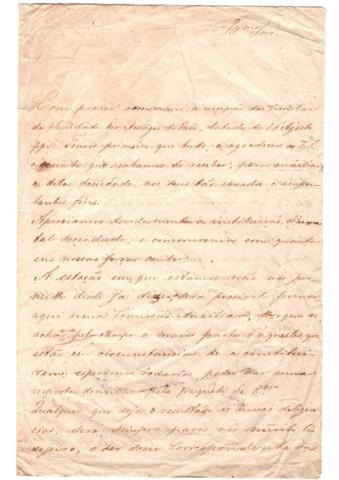 Illmos Snrs
Com prazer accusamos a recepção da Circular
da Sociedade dos Amigos de datada de de Agosto
ppo. Temos primeiro que tudo, a agradecer as
o convite que acabamos de receber, para auxiliar
a dita Sociedade, nos seus tão elevados e impor-
tantes fins.
Apreciamos devidamente a instituição d'uma
tal sociedade, e concorreremos com quanto
em nossas forças couber.
A estação em que estamos não nos per-
mitte desde já dizer, será possivel formar
aqui uma Comissão Auxiliar, porque se
achão fora a maior parte d'aquelles que
estão em circumstancias de a constituir
esperamos todavia poder dar uma
resposta pelo paquete de
Qualquer que seja o resultado de nossas deligen-
cias, será sempre para nós muito li-
songeiro, o ser Socio Correspondente da